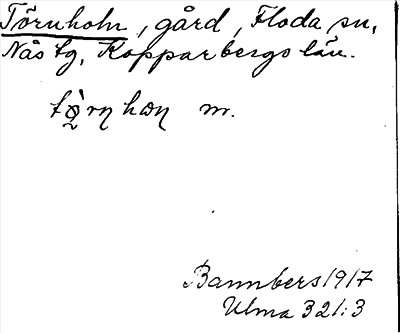 Törnholn, gård, Floda sn,
Nås tg, Kopparbergs län.
m.
Bannbers 1917
Ulma 321:3